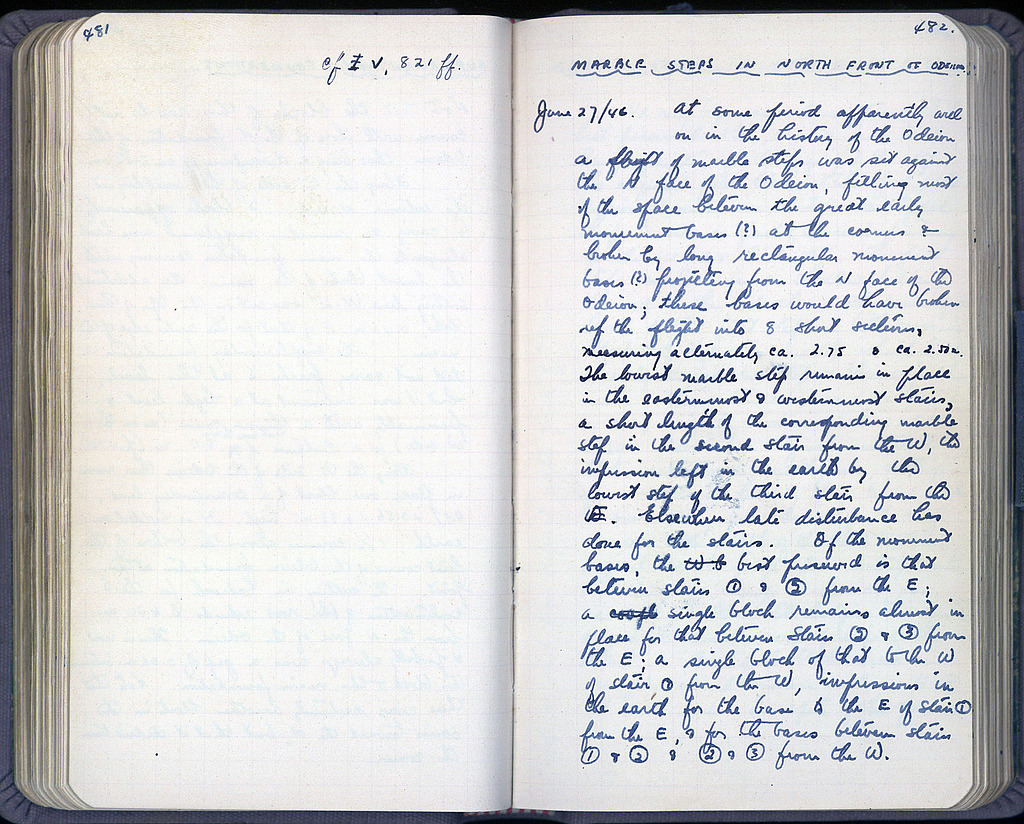 481
cf V, 821 ff.
482.
MARBLE STEPS IN NORTH FRONT OF ODEION
June 27/46. At some period apparently
on in the history of the Odeion
a flight of marble steps was set against
the N face of the Odeion, filling most
of the space between the great early
monument bases (?) at the corners &
broken by long rectangular monument
bases (?) projecting from the N face of the
Odeion; these bases would have broken
the flight into 8 short sections,
measuring alternately ca. 2.75 & ca. 2.50
The lowest marble step remains in place
in the easternmost & westernmost stairs,
a short length of the corresponding marble
step in the second stair from the W, the
impression left in the earth by the
lowest step of the third stair from the
E. Elsewhere late disturbance has
done for the stairs. Of the monument
bases, the best preserved is that
between stairs ① & ② from the E;
a single block remains almost in
place for that between stairs ② & ③ from
the E; a single block of that to the W
of stair ① from the W, impressions in
the earth for the base to the E of stair ①
from the E, & for the bases between stairs
① & ② & ② & ③ from the W.